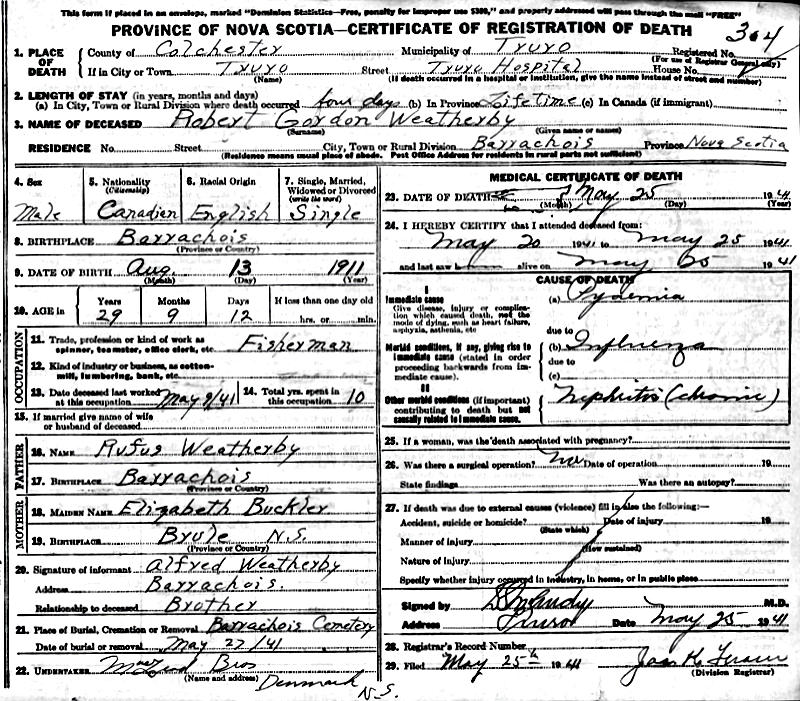 This form if placed in an envelope, marked "Dominion Statistics—Free, penalty for improper use $300," and properly addressed will pass through the mail "FREE"
PROVINCE OF NOVA SCOTIA—CERTIFICATE OF REGISTRATION OF DEATH
304
1. PLACE OF DEATH
County of Colchester Municipality of Truro Registered No.
(For use of Registrar General only)
If in City or Town Truro Street Truro Hospital House No.
(Name) (If death occurred in a hospital or institution, give the name instead of street and number)
2. LENGTH OF STAY (in years, months and days)
(a) In City, Town or Rural Division where death occurred four days (b) In Province Lifetime (c) In Canada (if immigrant)
3. NAME OF DECEASED Robert Gordon Weatherby
(Surname) (Given name or names)
RESIDENCE No. Street City, Town or Rural Division Barrachois Province Nova Scotia
(Residence means usual place of abode. Post Office Address for residents in rural parts not sufficient)
4. Sex
Male
5. Nationality (Citizenship)
Canadian
6. Racial Origin
English
7. Single, Married, Widowed or Divorced (write the word)
Single
8. BIRTHPLACE Barrachois
(Province or Country)
9. DATE OF BIRTH Aug. 13 1911
(Month) (Day) (Year)
10. AGE in Years Months Days If less than one day old
29 9 12 hrs. or min.
OCCUPATION
11. Trade, profession or kind of work as spinner, teamster, office clerk, etc. Fisherman
12. Kind of industry or business, as cotton-mill, lumbering, bank, etc.
13. Date deceased last worked at this occupation May 9/41
14. Total yrs. spent in this occupation 10
15. If married give name of wife or husband of deceased
FATHER
16. NAME Rufus Weatherby
17. BIRTHPLACE Barrachois
(Province or Country)
MOTHER
18. MAIDEN NAME Elizabeth Buckler
19. BIRTHPLACE Brule N.S.
(Province or Country)
20. Signature of informant Alfred Weatherby
Address Barrachois.
Relationship to deceased Brother
21. Place of Burial, Cremation or Removal Barrachois Cemetery
Date of burial or removal May 27/41
22. UNDERTAKER Bros
(Name and address) Denmark N.S.
MEDICAL CERTIFICATE OF DEATH
23. DATE OF DEATH May 25 1941
(Month) (Day) (Year)
24. I HEREBY CERTIFY that I attended deceased from:
May 20 1941 to May 25 1941
and last saw h alive on May 25 1941
CAUSE OF DEATH
I
Immediate cause
Give disease, injury or complication which caused death, not the mode of dying, such as heart failure, asphyxia, asthenia, etc
(a) Pyaemia
due to
Morbid conditions, if any, giving rise to immediate cause (stated in order proceeding backwards from immediate cause).
(b) Influenza
due to
(c)
II
Other morbid conditions (if important) contributing to death but not causally related to immediate cause.
Nephritis (chronic)
25. If a woman, was the death associated with pregnancy?
26. Was there a surgical operation? no Date of operation 19
State findings Was there an autopsy?
27. If death was due to external causes (violence) fill in also the following:—
Accident, suicide or homicide? Date of injury 19
(State which)
Manner of injury
(How sustained)
Nature of injury
Specify whether injury occurred in industry, in home, or in public place
Signed by M.D.
Address Truro Date May 25 1941
28. Registrar's Record Number
29. Filed May 25th 1941
(Division Registrar)